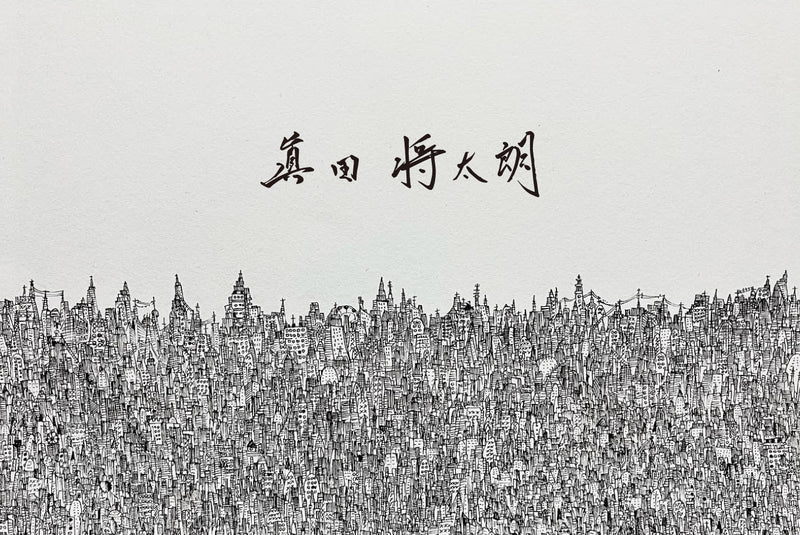 眞田 将太朗